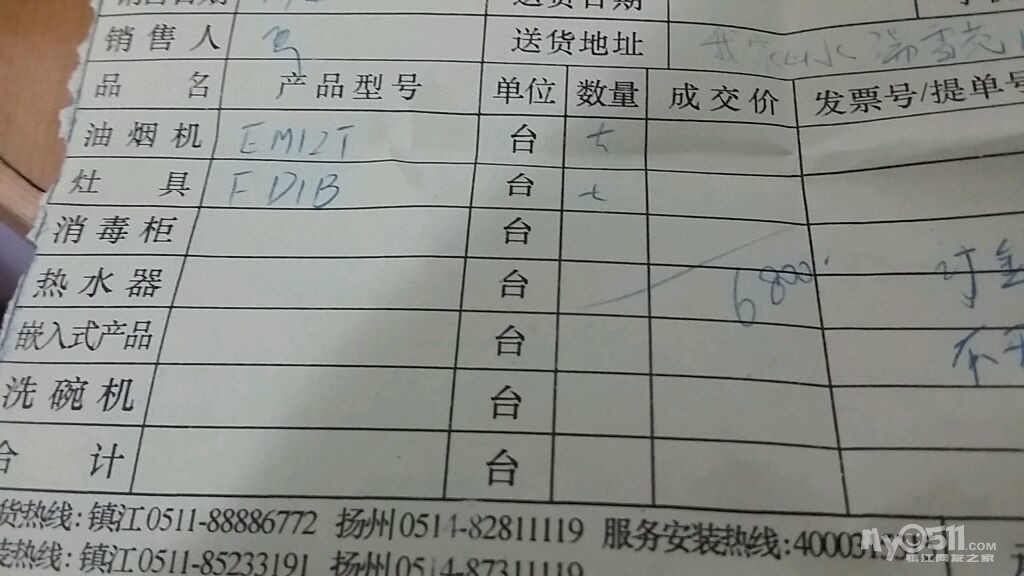 销售日期 送货日期
销售人 送货地址
品名 产品型号 单位 数量 成交价 发票号/提单号
油烟机 EM12T 台
灶具 FD1B 台
消毒柜 台
热水器 台 6800 订金
嵌入式产品 台
洗碗机 台
合计 台
货热线:镇江0511-88886772 扬州0514-82811119 服务安装热线:
装热线:镇江0511-85233191 扬州0514-87311119
my0511.com
镇江网友之家